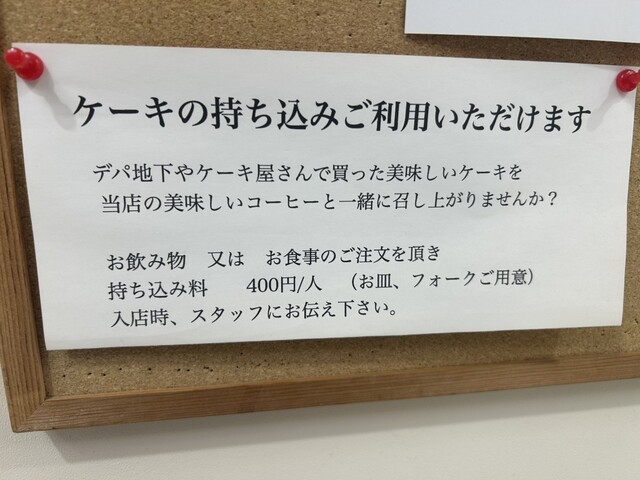 ケーキの持ち込みご利用いただけます
デパ地下やケーキ屋さんで買った美味しいケーキを
当店の美味しいコーヒーと一緒に召し上がりませんか？
お飲み物　又は　お食事のご注文を頂き
持ち込み料　　400円/人　（お皿、フォークご用意）
入店時、スタッフにお伝え下さい。